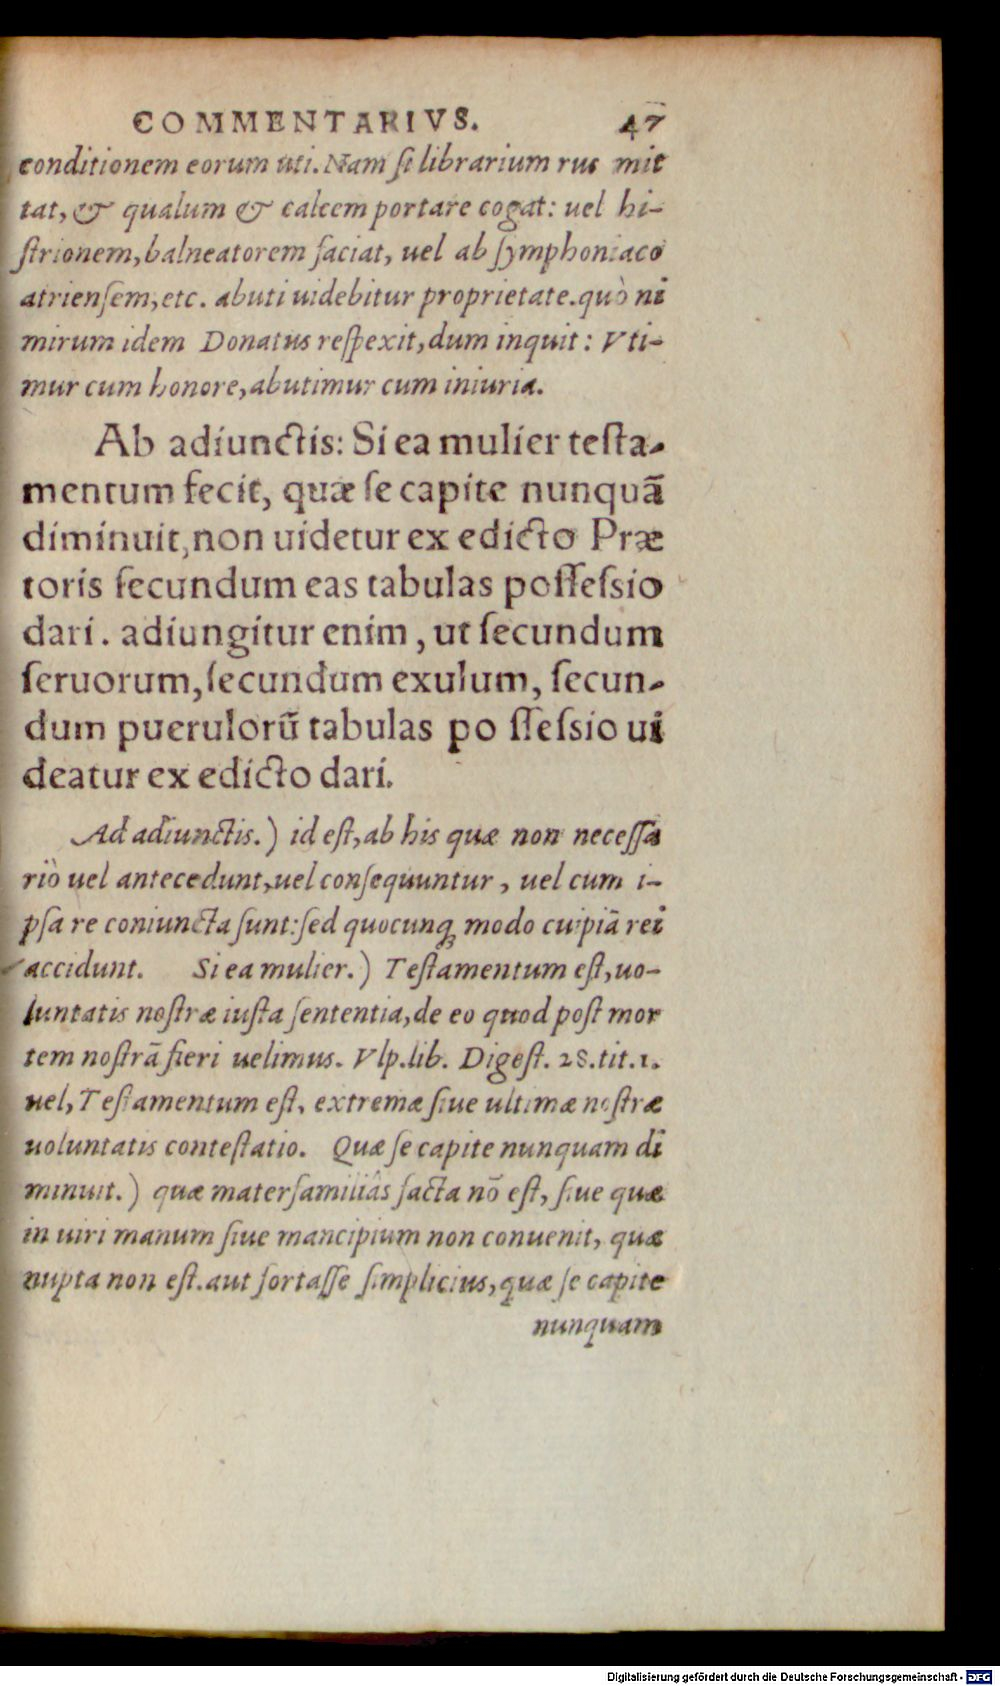 COMMENTARIVS. 47
conditionem eorum uti. Nam ſi librarium rus mit
tat, & qualum & calcem portare cogat: uel hi-
ſtrionem, balneatorem faciat, uel ab ſymphoniaco
atrienſem, etc. abuti uidebitur proprietate. quò ni
mirum idem Donatus reſpexit, dum inquit: Vti-
mur cum honore, abutimur cum iniuria.
Ab adiunctis: Si ea mulier teſta-
mentum fecit, quæ ſe capite nunquā
diminuit, non uidetur ex edicto Præ
toris ſecundum eas tabulas poſſeſsio
dari. adiungitur enim, ut ſecundum
ſeruorum, ſecundum exulum, ſecun-
dum puerulorū tabulas po ſſeſsio ui
deatur ex edicto dari.
Ad adiunctis.) id eſt, ab his quæ non neceſſa
riò uel antecedunt, uel conſequuntur, uel cum i-
pſa re coniuncta ſunt: ſed quocunq; modo cuipiā rei
accidunt. Si ea mulier.) Teſtamentum eſt, uo-
luntatis noſtræ iuſta ſententia, de eo quod poſt mor
tem noſtrā fieri uelimus. Vlp. lib. Digeſt. 28. tit. 1.
uel, Teſtamentum eſt, extremæ ſiue ultimæ noſtræ
uoluntatis conteſtatio. Quæ ſe capite nunquam di
minuit.) quæ materfamiliâs facta nō eſt, ſiue quæ
in uiri manum ſiue mancipium non conuenit, quæ
nupta non eſt. aut fortaſſe ſimplicius, quæ ſe capite
nunquam
Digitalisierung gefördert durch die Deutsche Forschungsgemeinschaft - DFG